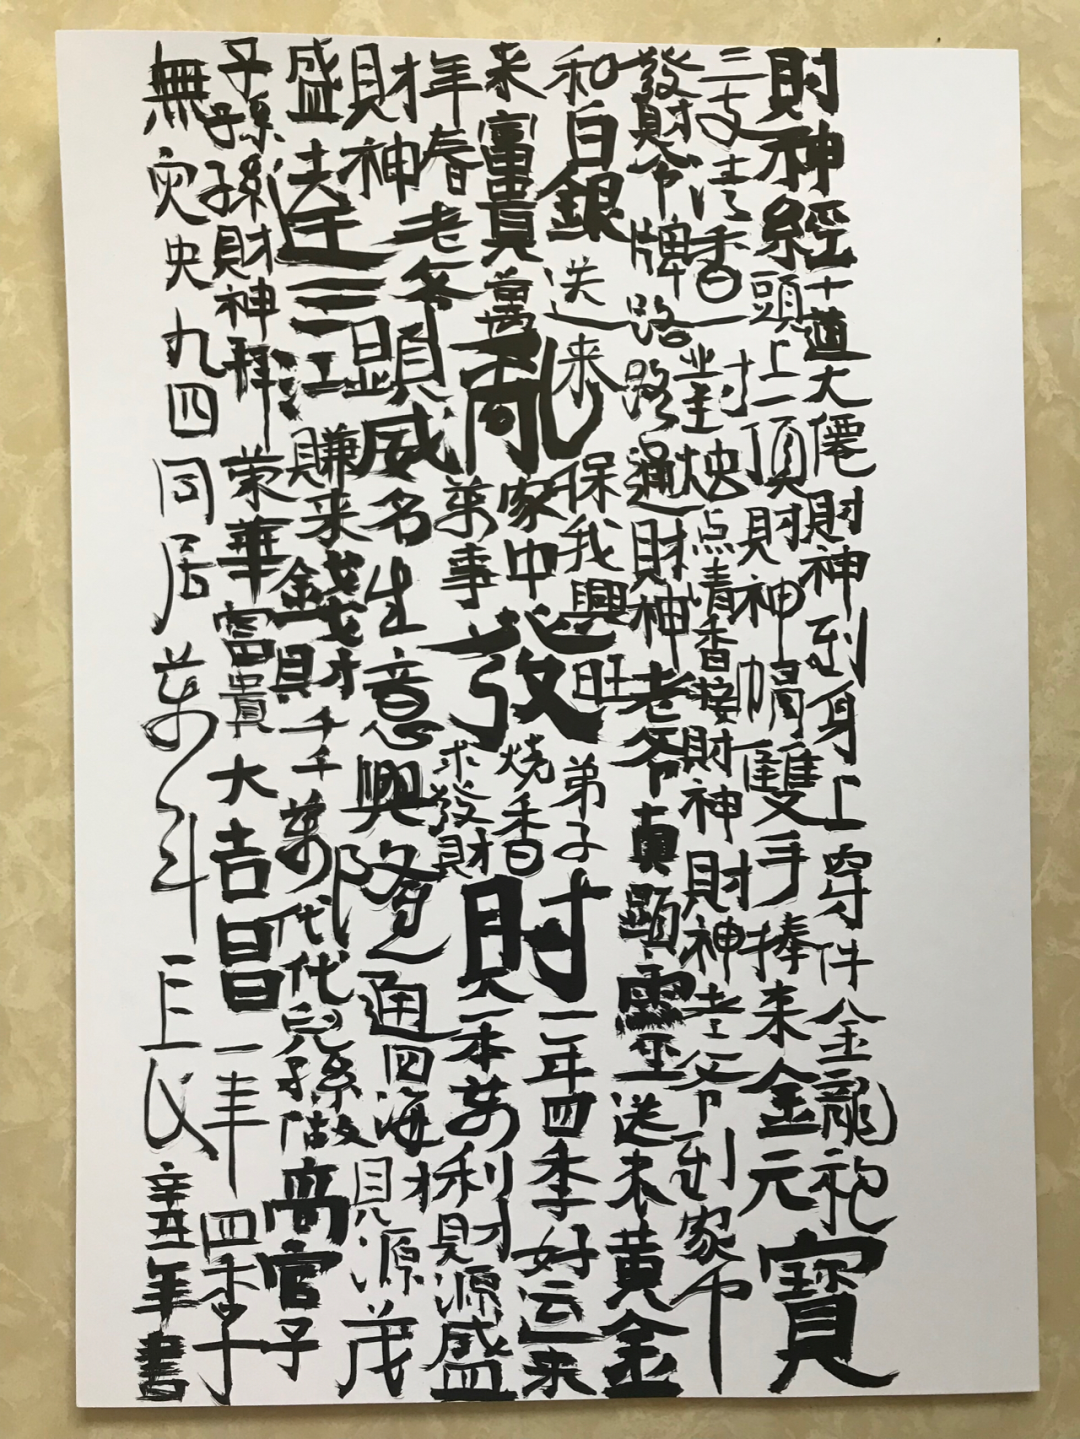 財神經十道大僊財神到身上穿件金龍袍
頭上一頂財神帽雙手捧来金元寶
三支清香一對烛点清香接財神財神老爷到家中
發財令牌路路通財神老爷真顕靈送来黄金
和白銀送来保我興旺弟子一年四季好运来
来富貴萬亂家中發烧香財一本萬利財源盛
年春老爷顕萬事求發財
財神顕威名生意興隆通四海財源茂
盛达三江賺来金錢財千千萬代代兒孫做高官子
子孫子孫財神拜荣華富貴大吉昌一年四季
無灾央九四同居萬斗
民辛丑年書